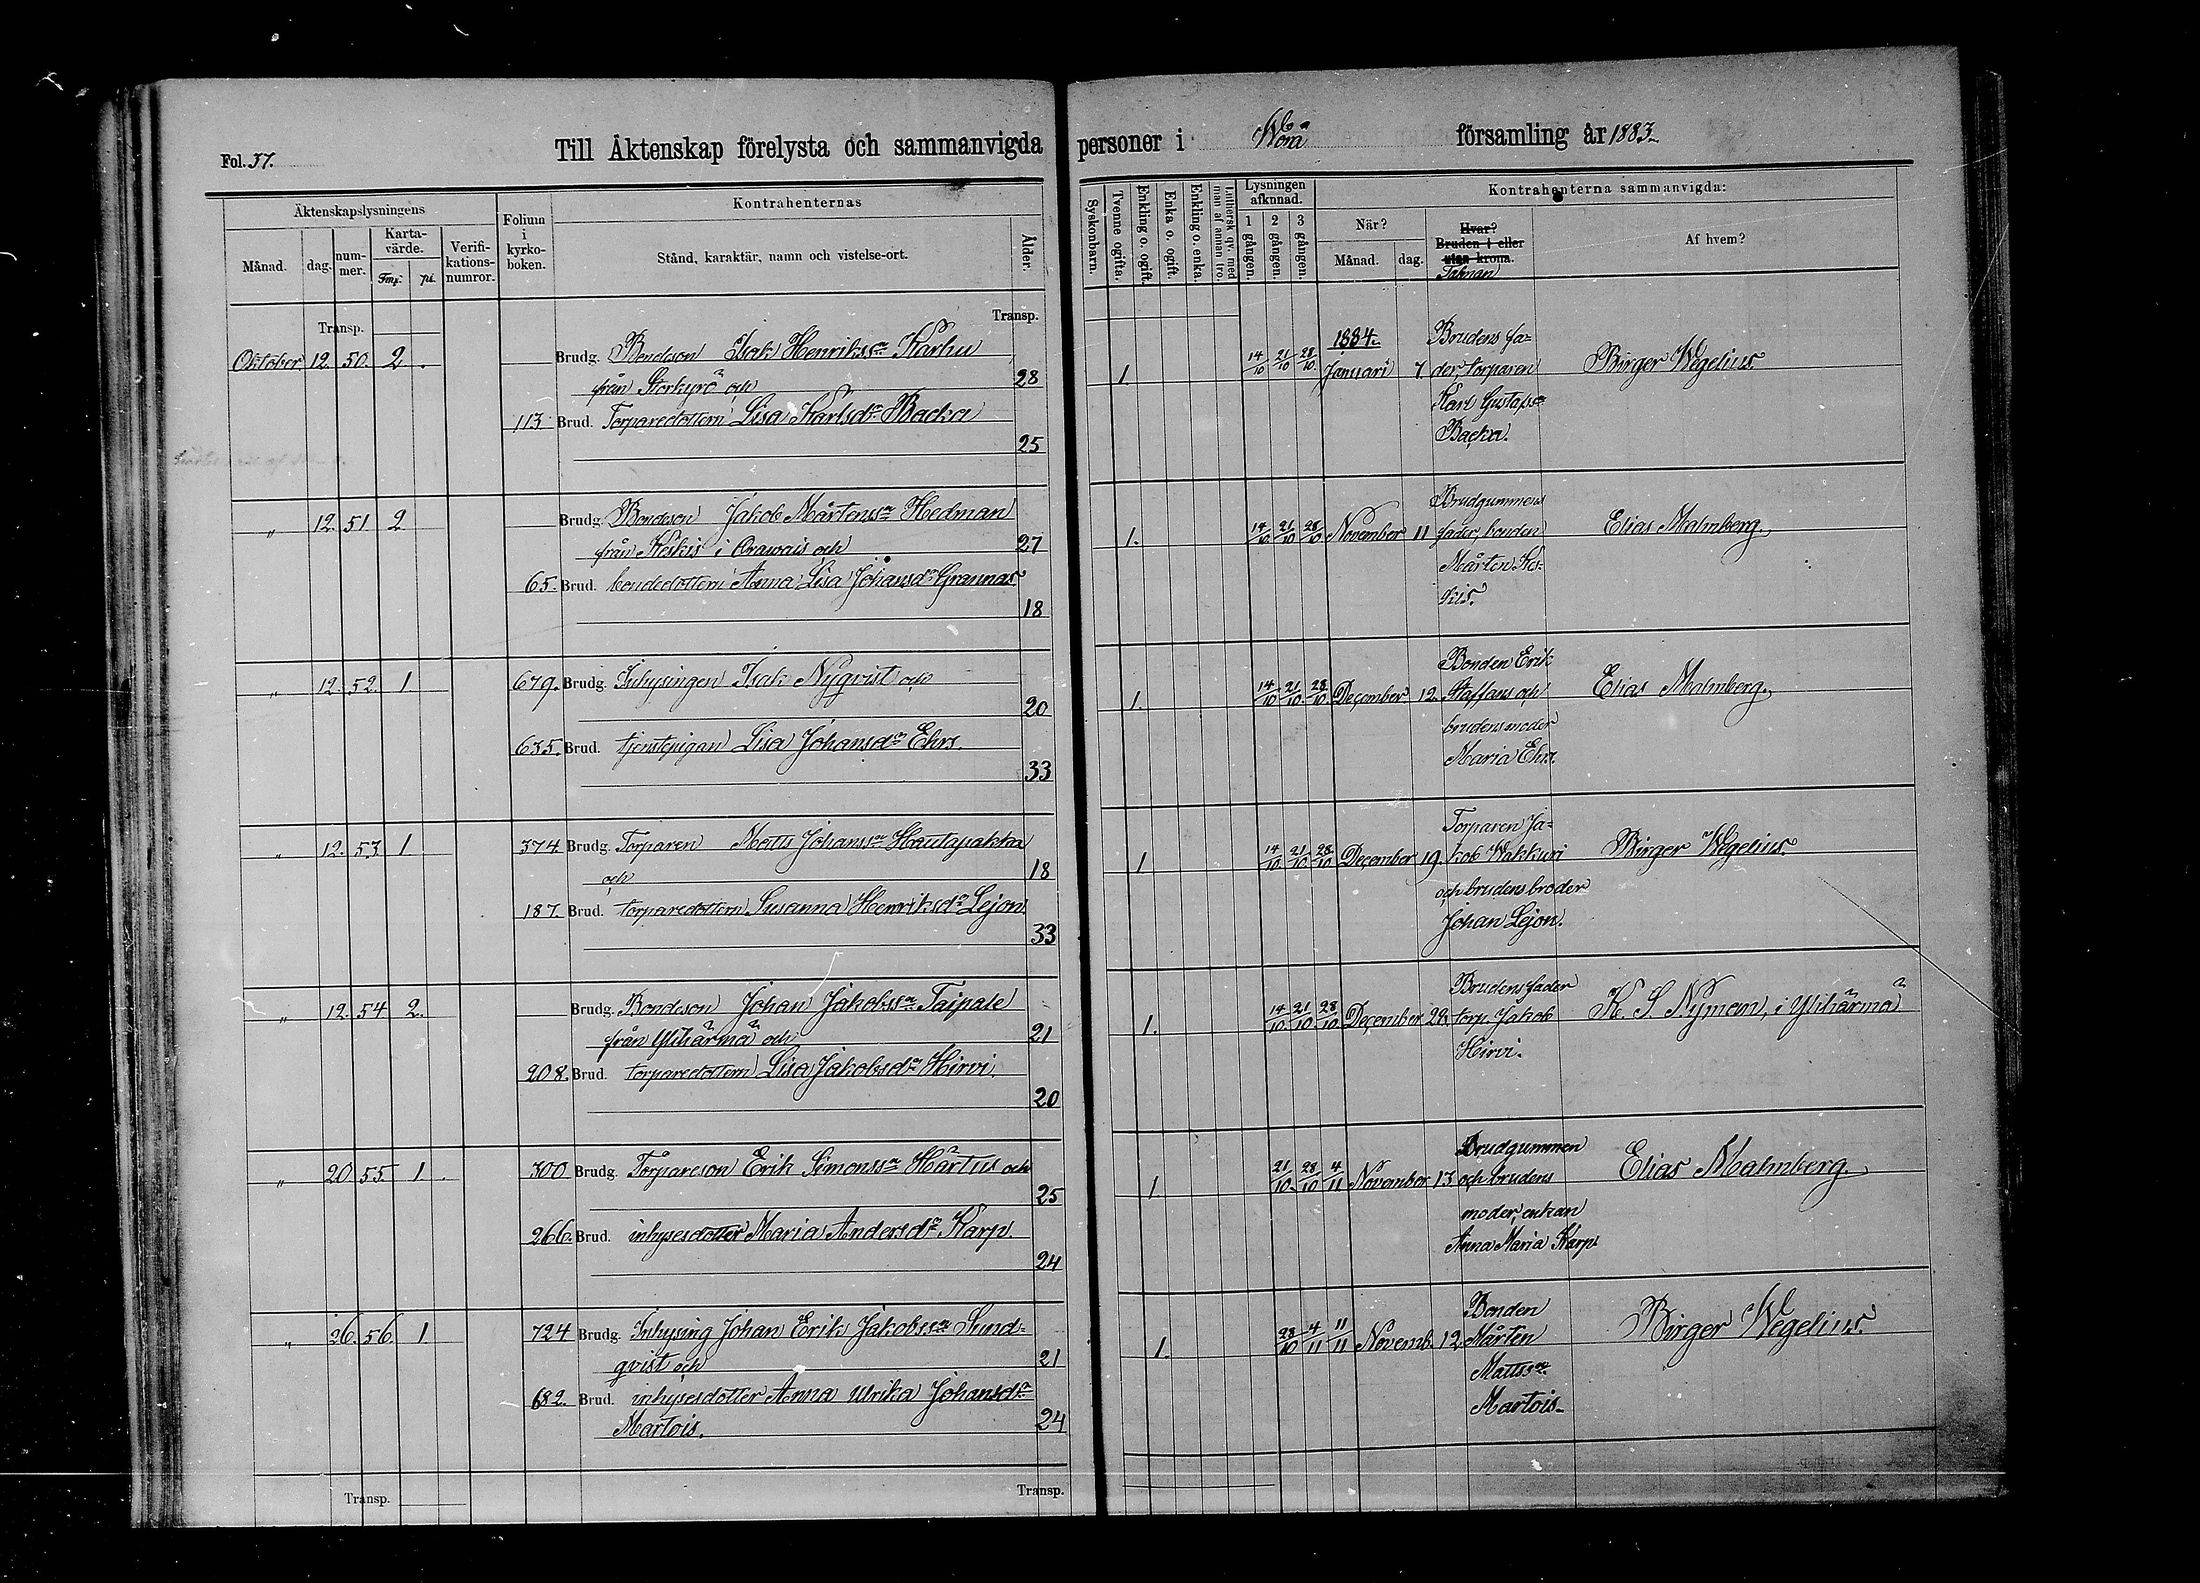 Fol. 37.
Till Äktenskap förelysta och sammanvigda personer i Wörå församling år 1883
Äktenskapslysningens
Månad.
dag.
num-
mer.
Karta-
värde.
Fmf.
pi.
Verifi-
kations-
numror.
Folium
i
kyrko-
boken.
Kontrahenternas
Stånd, karaktär, namn och vistelse-ort.
Ålder.
Syskonbarn.
Tvenne ogifta.
Enkling o. ogift.
Enka o. ogift.
Enkling o. enka.
Luthersk qv. med
man af annan tro.
Lysningen
afknnad.
1 gången.
2 gången.
3 gången.
Kontrahenterna sammanvigda:
När?
Månad.
dag.
Hvar?
Bruden i eller
utan krona.
Talman
Af hvem?
Transp.
Transp.
Oktober 12. 50. 2. Brudg. Bondeson Isak Henrikss. Karhu
från Storkyrö och 28
113. Brud. Torparedottern Lisa Karlsd. Backa
25
1. 14/10 21/10 28/10 1884. Januari 7. Brudens fa-
der, torparen
Karl Gustafss.
Backa.
Birger Wegelius.
" 12. 51 2 Brudg. Bondeson Jakob Mårtenss. Hedman
från Keskis i Orawais och 27
65. Brud. bondedottern Anna Lisa Johansd. Grannas
18
1. 14/10 21/10 28/10 November 11 Brudgummens
fader, bonden
Mårten Kes-
kis.
Elias Malmberg.
" 12. 52. 1. 679. Brudg. Inhysingen Isak Nyqvist och
20
635. Brud. tjenstepigan Lisa Johansd. Ehrs.
33
1. 14/10 21/10 28/10 December 12. Bonden Erik
Staffans och
brudens moder
Maria Ehrs.
Elias Malmberg.
" 12. 53 1. 374. Brudg. Torparen Matts Johanss. Hautapakka
och 18
187. Brud. torparedottern Susanna Henriksd. Lejon.
33
1 14/10 21/10 28/10 December 19. Torparen Ja-
kob Wakkuri
och brudens broder
Johan Lejon.
Birger Wegelius.
" 12. 54 2. Brudg. Bondeson Johan Jakobss. Taipale
från Ylihärmä och 21
208. Brud. torparedottern Lisa Jakobsd. Hirvi.
20
1. 14/10 21/10 28/10 December Brudens fader
torp. Jakob
Hirvi.
K. S. Nyman, i Ylihärmä
" 20 55. 1. 300 Brudg. Torpareson Erik Simonss. Härtus och
25
266. Brud. inhysesdotter Maria Andersd. Karp.
24
1. 21/10 28/10 4/11 November 13 Brudgummen
och brudens
moder, enkan
Anna Maria Karp.
Elias Malmberg.
" 26. 56. 1 724 Brudg. Inhysing Johan Erik Jakobss. Sund-
qvist och 21
682. Brud. inhysesdotter Anna Ulrika Johansd.
Martois. 24
1. 28/10 4/11 11/11 Novemb. 12 Bonden
Mårten
Mattss.
Martois.
Birger Wegelius.
Transp.
Transp.